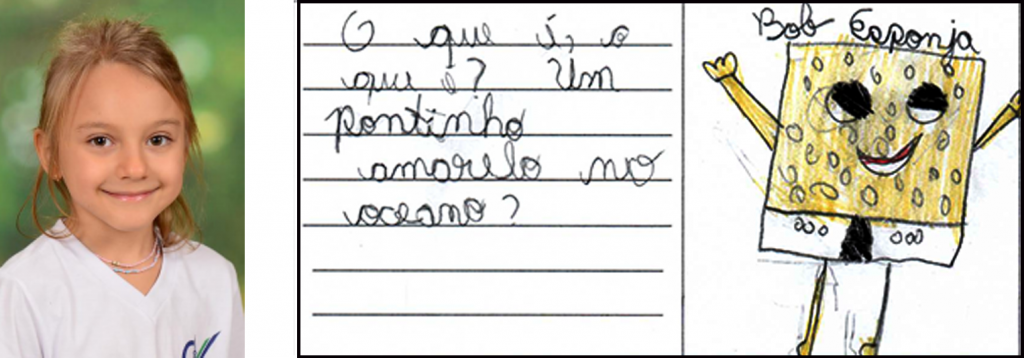 O que é, o
que é? Um
pontinho
amarelo no
oceano?
Bob Esponja